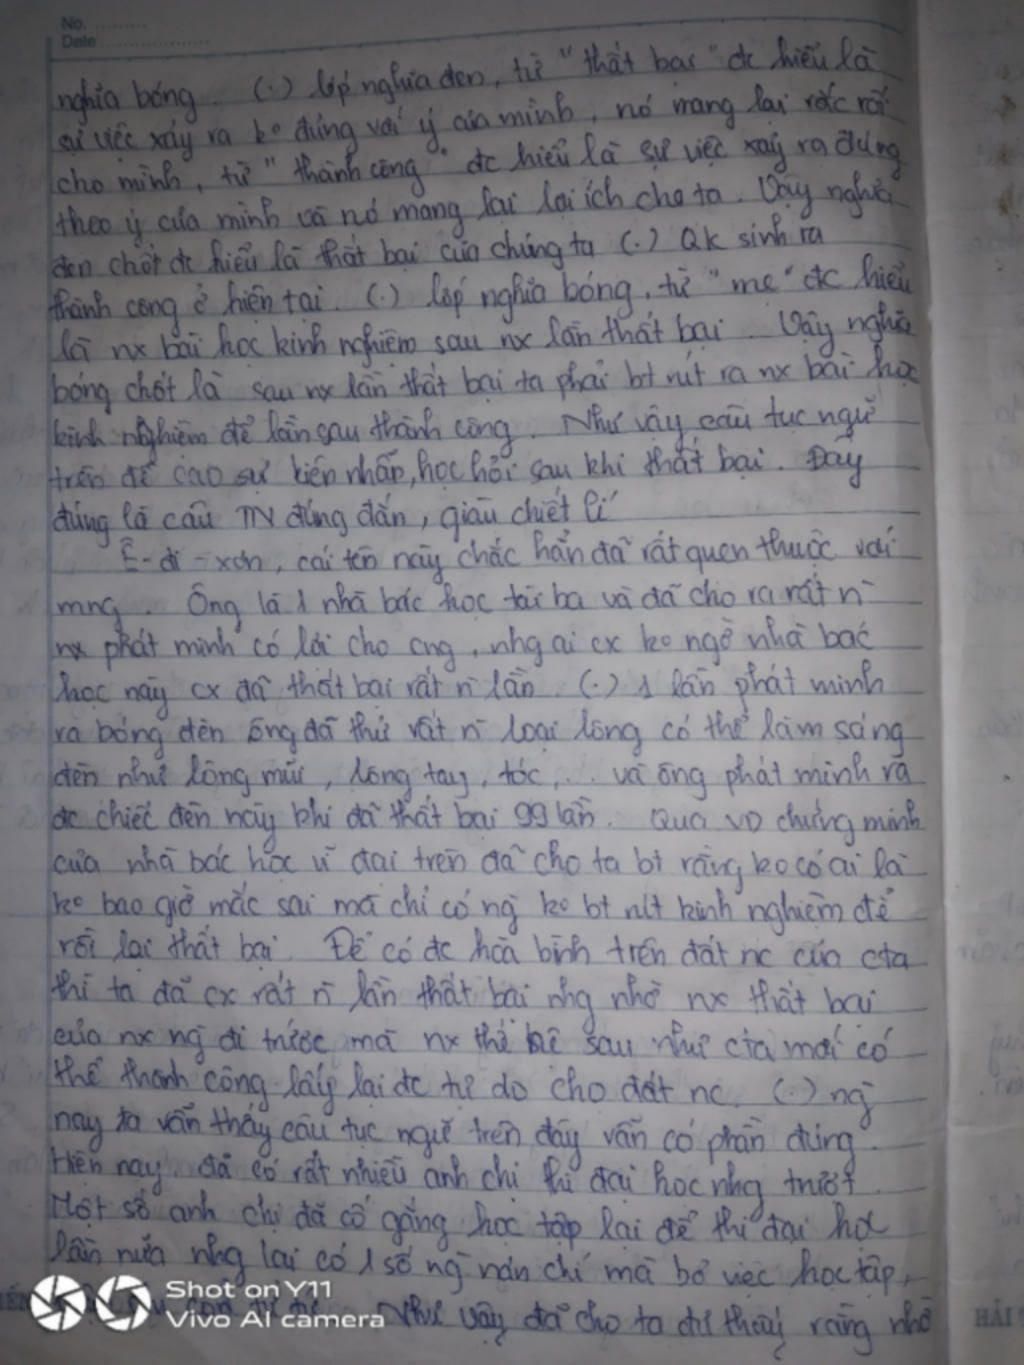 No. ..........
Date ....................
nghĩa bóng. (.) lớp nghĩa đen, từ "thất bại" đc hiểu là
sự việc xảy ra ko đúng với ý của mình, nó mang lại rắc rối
cho mình, từ "thành công" đc hiểu là sự việc xảy ra đúng
theo ý của mình và nó mang lại lợi ích cho ta. Vậy nghĩa
đen chốt đc hiểu là thất bại của chúng ta (.) QK sinh ra
thành công ở hiện tại. (.) lớp nghĩa bóng, từ "mẹ" đc hiểu
là nx bài học kinh nghiệm sau nx lần thất bại. Vậy nghĩa
bóng chốt là sau nx lần thất bại ta phải bt rút ra nx bài học
kinh nghiệm để lần sau thành công. Như vậy câu tục ngữ
trên đề cao sự kiên nhấp, học hỏi sau khi thất bại. Đây
đúng là câu TN đúng đắn, giàu chiết lí
Ê-đi-xơn, cái tên này chắc hẳn đã rất quen thuộc với
mng. Ông là 1 nhà bác học tài ba và đã cho ra rất n̄
nx phát minh có lợi cho cng, nhg ai cx ko ngờ nhà bác
học này cx đã thất bại rất n̄ lần. (.) 1 lần phát minh
ra bóng đèn ông đã thử rất n̄ loại lông có thể làm sáng
đèn như lông mũi, lông tay, tóc,... và ông phát minh ra
đc chiếc đèn này khi đã thất bại 99 lần. Qua VD chứng minh
của nhà bác học vĩ đại trên đã cho ta bt rằng ko có ai là
ko bao giờ mắc sai mà chỉ có ng̀ ko bt rút kinh nghiệm để
rồi lại thất bại. Để có đc hoà bình trên đất nc của cta
thì ta đã cx rất n̄ lần thất bại nhg nhờ nx thất bại
của nx ng̀ đi trước mà nx thế hệ sau như cta mới có
thể thành công lấy lại đc tự do cho đất nc. (.) ng̀
nay ta vẫn thấy câu tục ngữ trên đây vẫn có phần đúng.
Hiện nay, đã có rất nhiều anh chị thi đại học nhg trượt.
Một số anh chị đã cố gắng học tập lại để thi đại học
lần nữa nhg lại có 1 số ng̀ nản chí mà bỏ việc học tập,
Như vậy đã cho ta thấy rằng nhờ
Shot on Y11
Vivo AI camera
HẢI